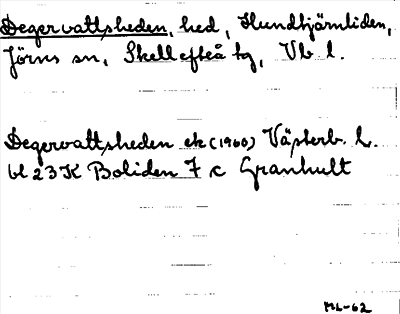 Degervattsheden, hed, Hundtjärnliden,
Jörns sn, Skellefteå tg, Vb l.
Degervattsheden ek (1960) Västerb. l.
bl 23 K Boliden 7 c Granhult
ML-62